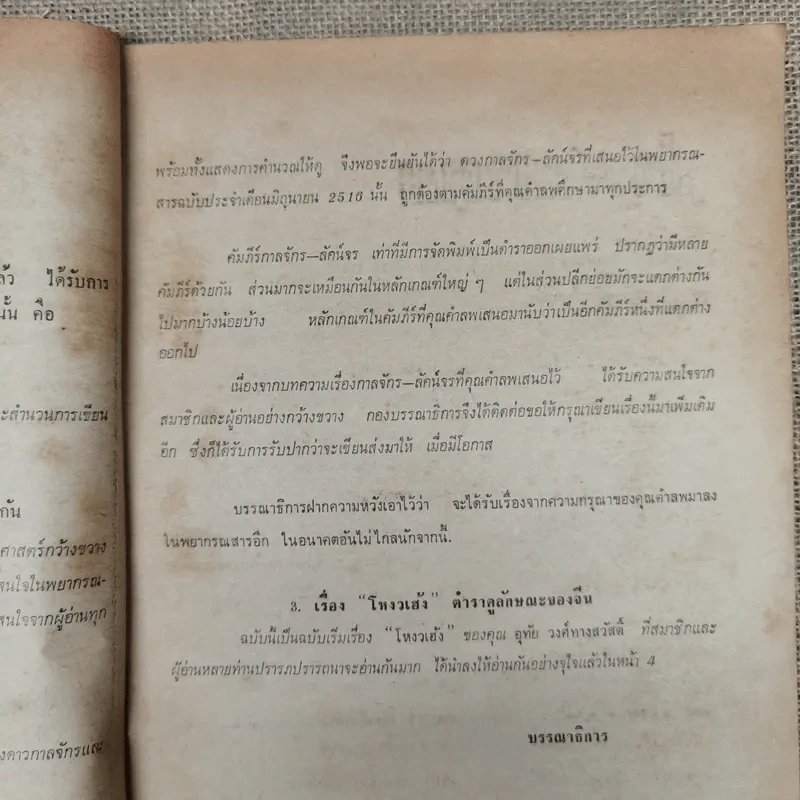 ล้ว ได้รับการ
นั้น คือ
ะสำนวนการเขียน
กัน
ศาสตร์กว้างขวาง
สนใจในพยากรณ-
สนใจจากผู้อ่านทุก
งดาวกาลจักรและ
พร้อมทั้งแสดงการคำนวณให้ดู จึงพอจะยืนยันได้ว่า ดวงกาลจักร–ลัคน์จรที่เสนอไว้ในพยากรณ-
สารฉบับประจำเดือนมิถุนายน 2516 นั้น ถูกต้องตามคัมภีร์ที่คุณคำลพศึกษามาทุกประการ
คัมภีร์กาลจักร–ลัคน์จร เท่าที่มีการจัดพิมพ์เป็นตำราออกเผยแพร่ ปรากฏว่ามีหลาย
คัมภีร์ด้วยกัน ส่วนมากจะเหมือนกันในหลักเกณฑ์ใหญ่ ๆ แต่ในส่วนปลีกย่อยมักจะแตกต่างกัน
ไปมากบ้างน้อยบ้าง หลักเกณฑ์ในคัมภีร์ที่คุณคำลพเสนอมานับว่าเป็นอีกคัมภีร์หนึ่งที่แตกต่าง
ออกไป
เนื่องจากบทความเรื่องกาลจักร–ลัคน์จรที่คุณคำลพเสนอไว้ ได้รับความสนใจจาก
สมาชิกและผู้อ่านอย่างกว้างขวาง กองบรรณาธิการจึงได้ติดต่อขอให้กรุณาเขียนเรื่องนี้มาเพิ่มเติม
อีก ซึ่งก็ได้รับการรับปากว่าจะเขียนส่งมาให้ เมื่อมีโอกาส
บรรณาธิการฝากความหวังเอาไว้ว่า จะได้รับเรื่องจากความกรุณาของคุณคำลพมาลง
ในพยากรณสารอีก ในอนาคตอันไม่ไกลนักจากนี้.
3. เรื่อง “โหงวเฮ้ง” ตำราดูลักษณะของจีน
ฉบับนี้เป็นฉบับเริ่มเรื่อง “โหงวเฮ้ง” ของคุณ อุทัย วงศ์ทางสวัสดิ์ ที่สมาชิกและ
ผู้อ่านหลายท่านปรารภปรารถนาจะอ่านกันมาก ได้นำลงให้อ่านกันอย่างจุใจแล้วในหน้า 4
บรรณาธิการ